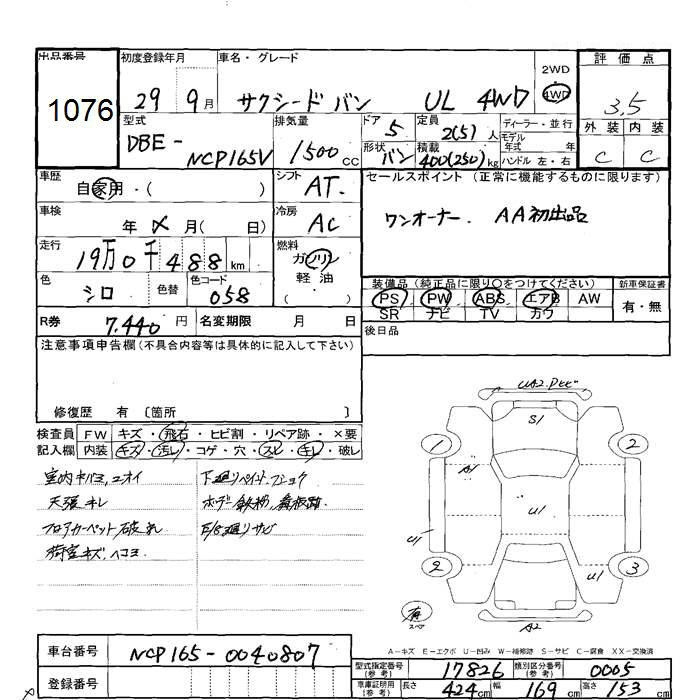 出品番号 初度登録年月 車名・グレード 2WD 評価点
1076 29 9月 サクシード バン UL 4WD 4WD 3,5
型式 排気量 ドア 5 定員 2(5)人 ディーラー・並行 外装 内装
DBE-NCP165V 1500cc 形状 バン 積載 400(250)kg モデル年式 年 ハンドル 左・右 C C
車歴 自家用・( ) シフト AT. セールスポイント (正常に機能するものに限ります)
車検 年 メ 月( 日) 冷房 AC ワンオーナー. AA初出品
走行 19万0千488km 燃料 ガソリン 軽油
色 シロ 色替 色コード 058 装備品(純正品に限り○をつけてください) 新車保証書
PS PW ABS エアB AW 有・無
SR ナビ TV カワ
R券 7.440円 名変期限 月 日 後日品
注意事項申告欄(不具合内容等は具体的に記入して下さい)
修復歴 有 〔箇所 〕
検査員 FW キズ・飛石・ヒビ割・リペア跡・×要
記入欄 内装 キズ・汚レ・コゲ・穴・スレ・キレ・破レ
室内キバミ,ニオイ 下廻りペイント.
天張キレ ボデー 看板跡.
フロアカーペット破れ 廻りサビ
荷室キズ,ヘコミ
UA2.
S1
1 2
A1
U1
U1
2 U1 3
有
スペア
A2
A-キズ E-エクボ U-凹み W-補修跡 S-サビ C-腐食 XX-交換済
車台番号 NCP165-0040807
登録番号
型式指定番号(参考) 17826 類別区分番号(参考) 0005
車庫証明用(参考) 長さ 424cm 幅 169cm 高さ 153cm